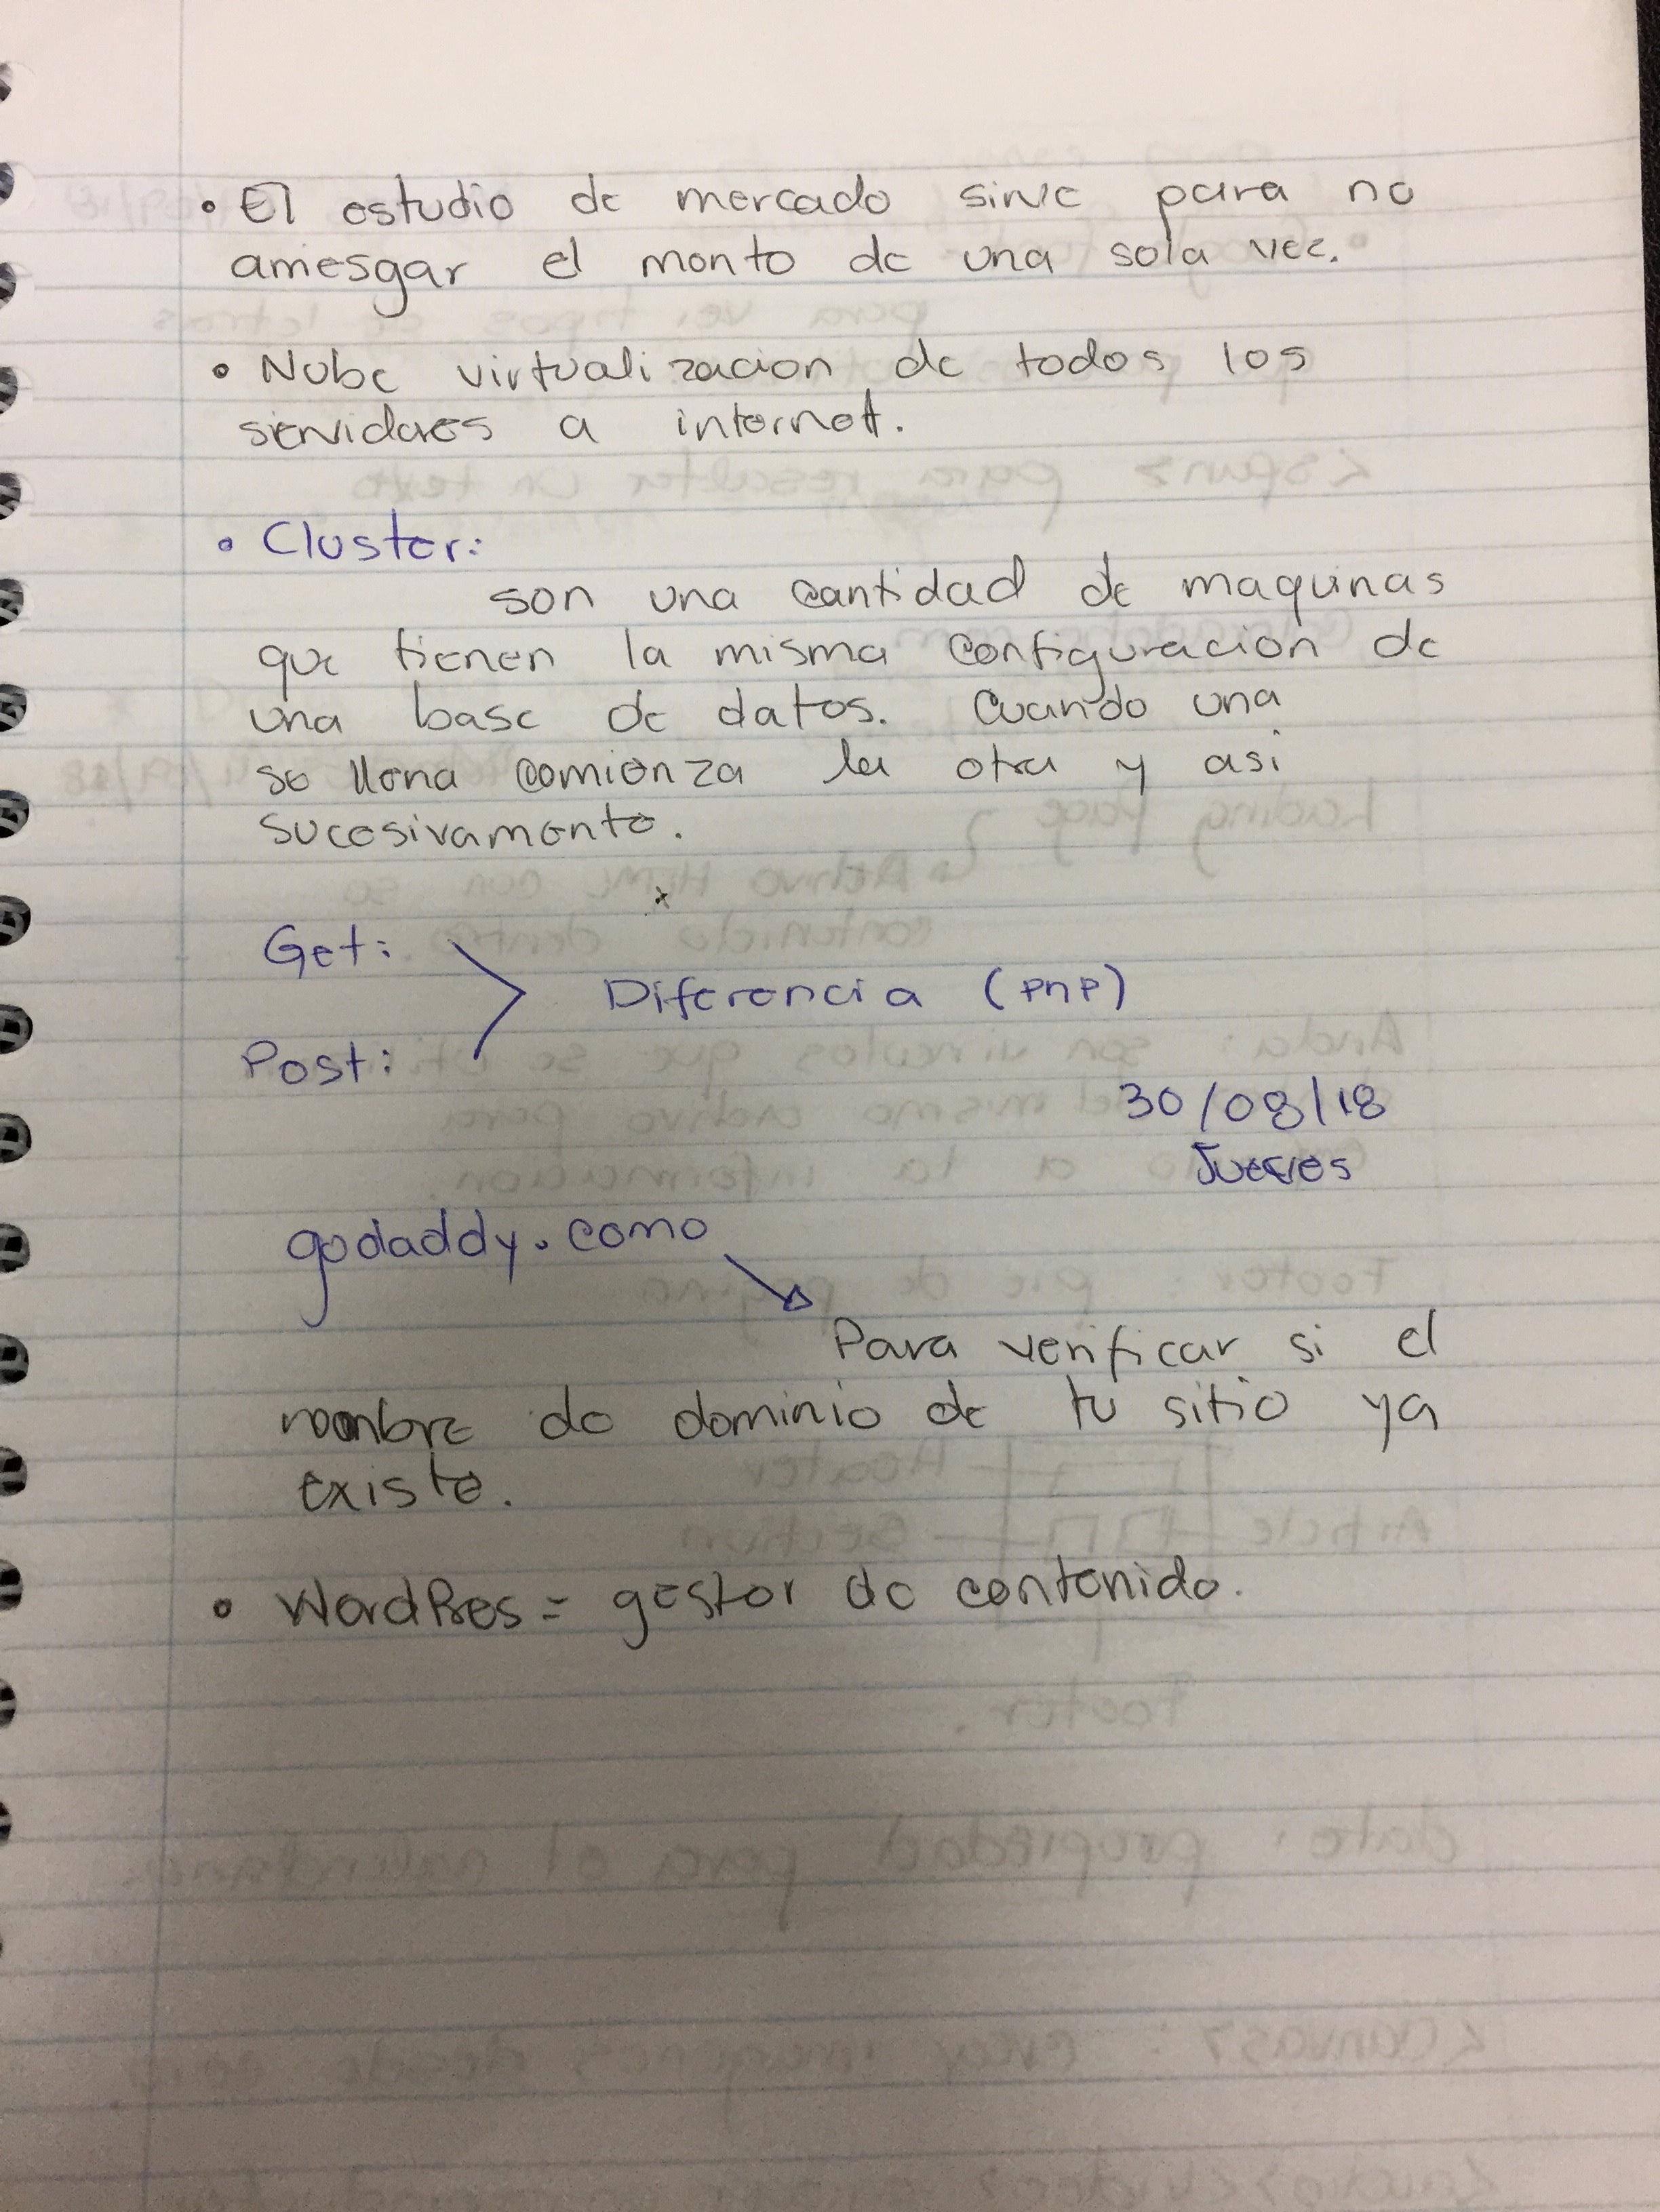 • El estudio de mercado sirve para no
arriesgar el monto de una sola vez.
• Nube virtualizacion de todos los
servidores a internet.
• Cluster:
son una cantidad de maquinas
que tienen la misma configuracion de
una base de datos. Cuando una
se llena comienza la otra y asi
sucesivamente.
Get:
Diferencia (PHP)
Post:
30/08/18
Jueves
godaddy.como
Para verificar si el
nombre de dominio de tu sitio ya
existe.
• WordPres = gestor de contenido.